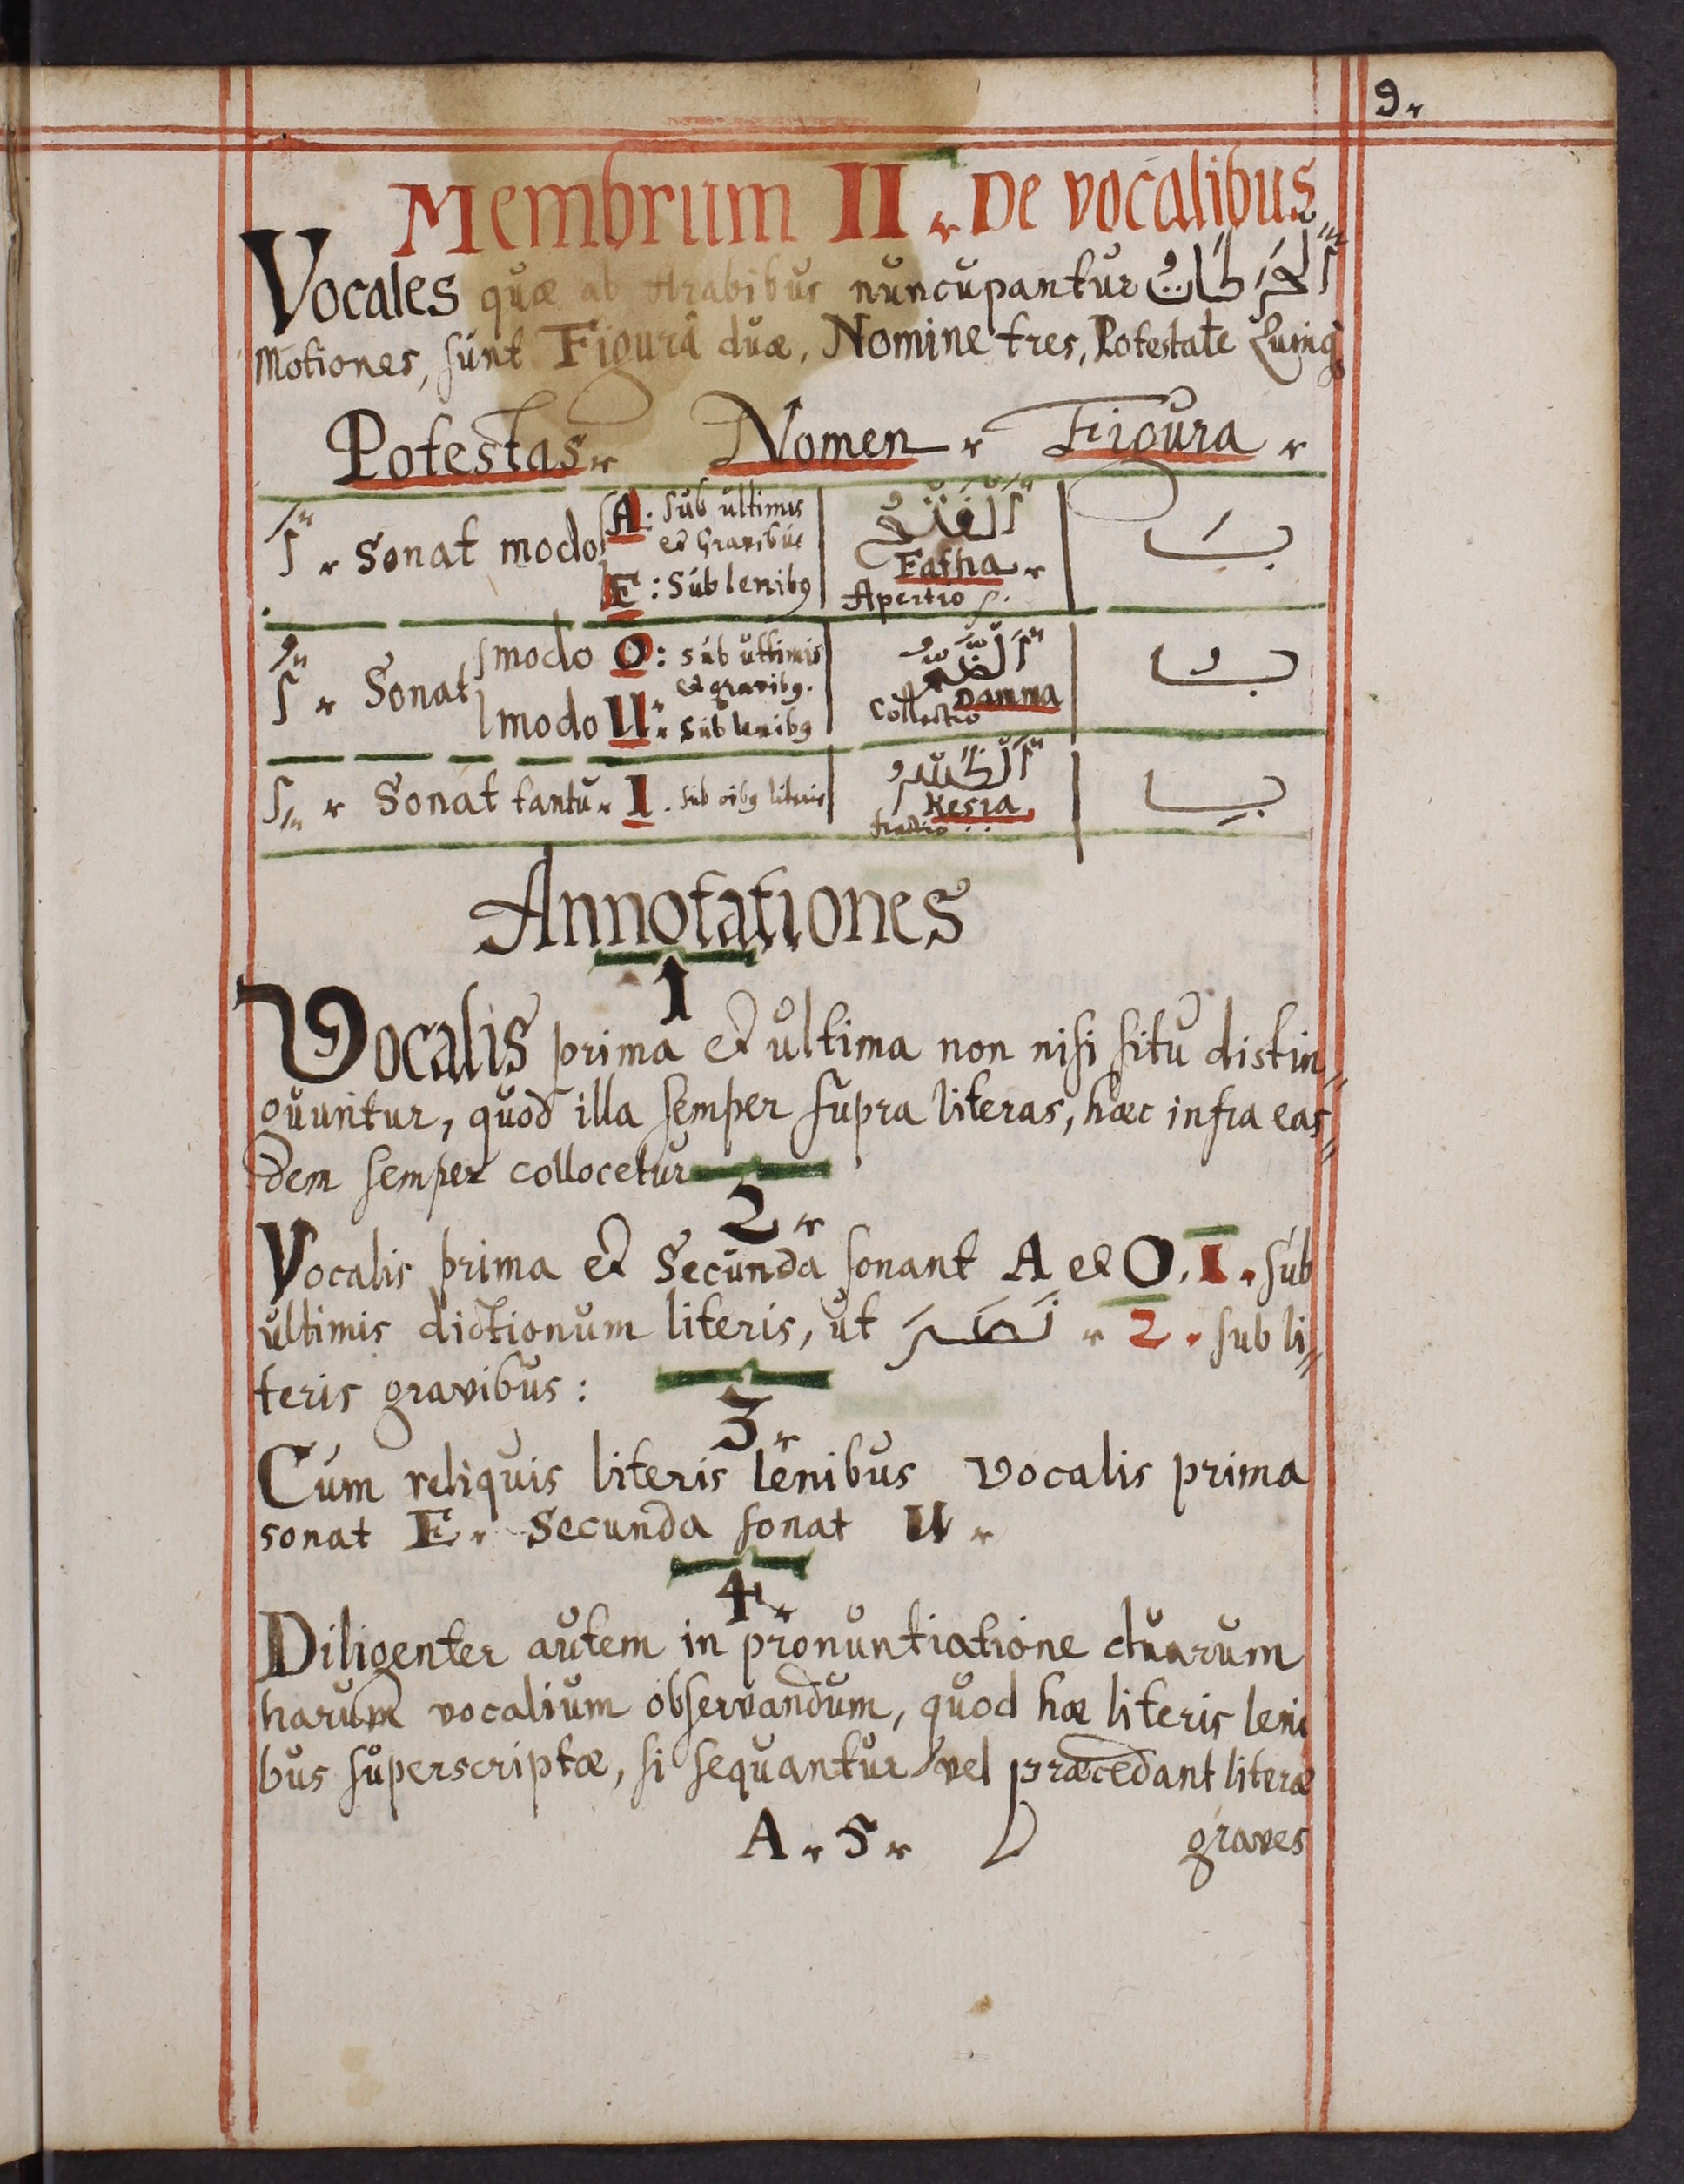 9.
Membrum II. De vocalibus
Vocales quæ ab Arabibus nuncupantur اَلْحَرَكَاتُ
Motiones, sunt Figurâ duæ, Nomine tres, Potestate Quinq
Potestas. Nomen. Figura.
Sonat modo A. sub ultimis et Gravibus
E: Sub lenibq
الفتح Fatha. Apertio
بَ
Sonat modo O: sub ultimis et gravibq.
modo U. sub lenibq
الضم Damma Collectio
بُ
Sonat tantū. I. sub oibq literis
الكسر Kesra fractio
بِ
Annotationes
1
Vocalis prima et ultima non nisi situ distin
guuntur, quod illa semper supra literas, hæc infra eas
dem semper collocetur
2.
Vocalis prima et Secunda sonant A et O. 1. sub
ultimis dictionum literis, ut نَصَرَ. 2. sub li
teris gravibus:
3.
Cum reliquis literis lenibus vocalis prima
sonat E. Secunda sonat U.
4.
Diligenter autem in pronuntiatione duarum
harum vocalium observandum, quod hæ literis leni
bus superscriptæ, si sequantur vel præcedant literæ
A. 5. graves